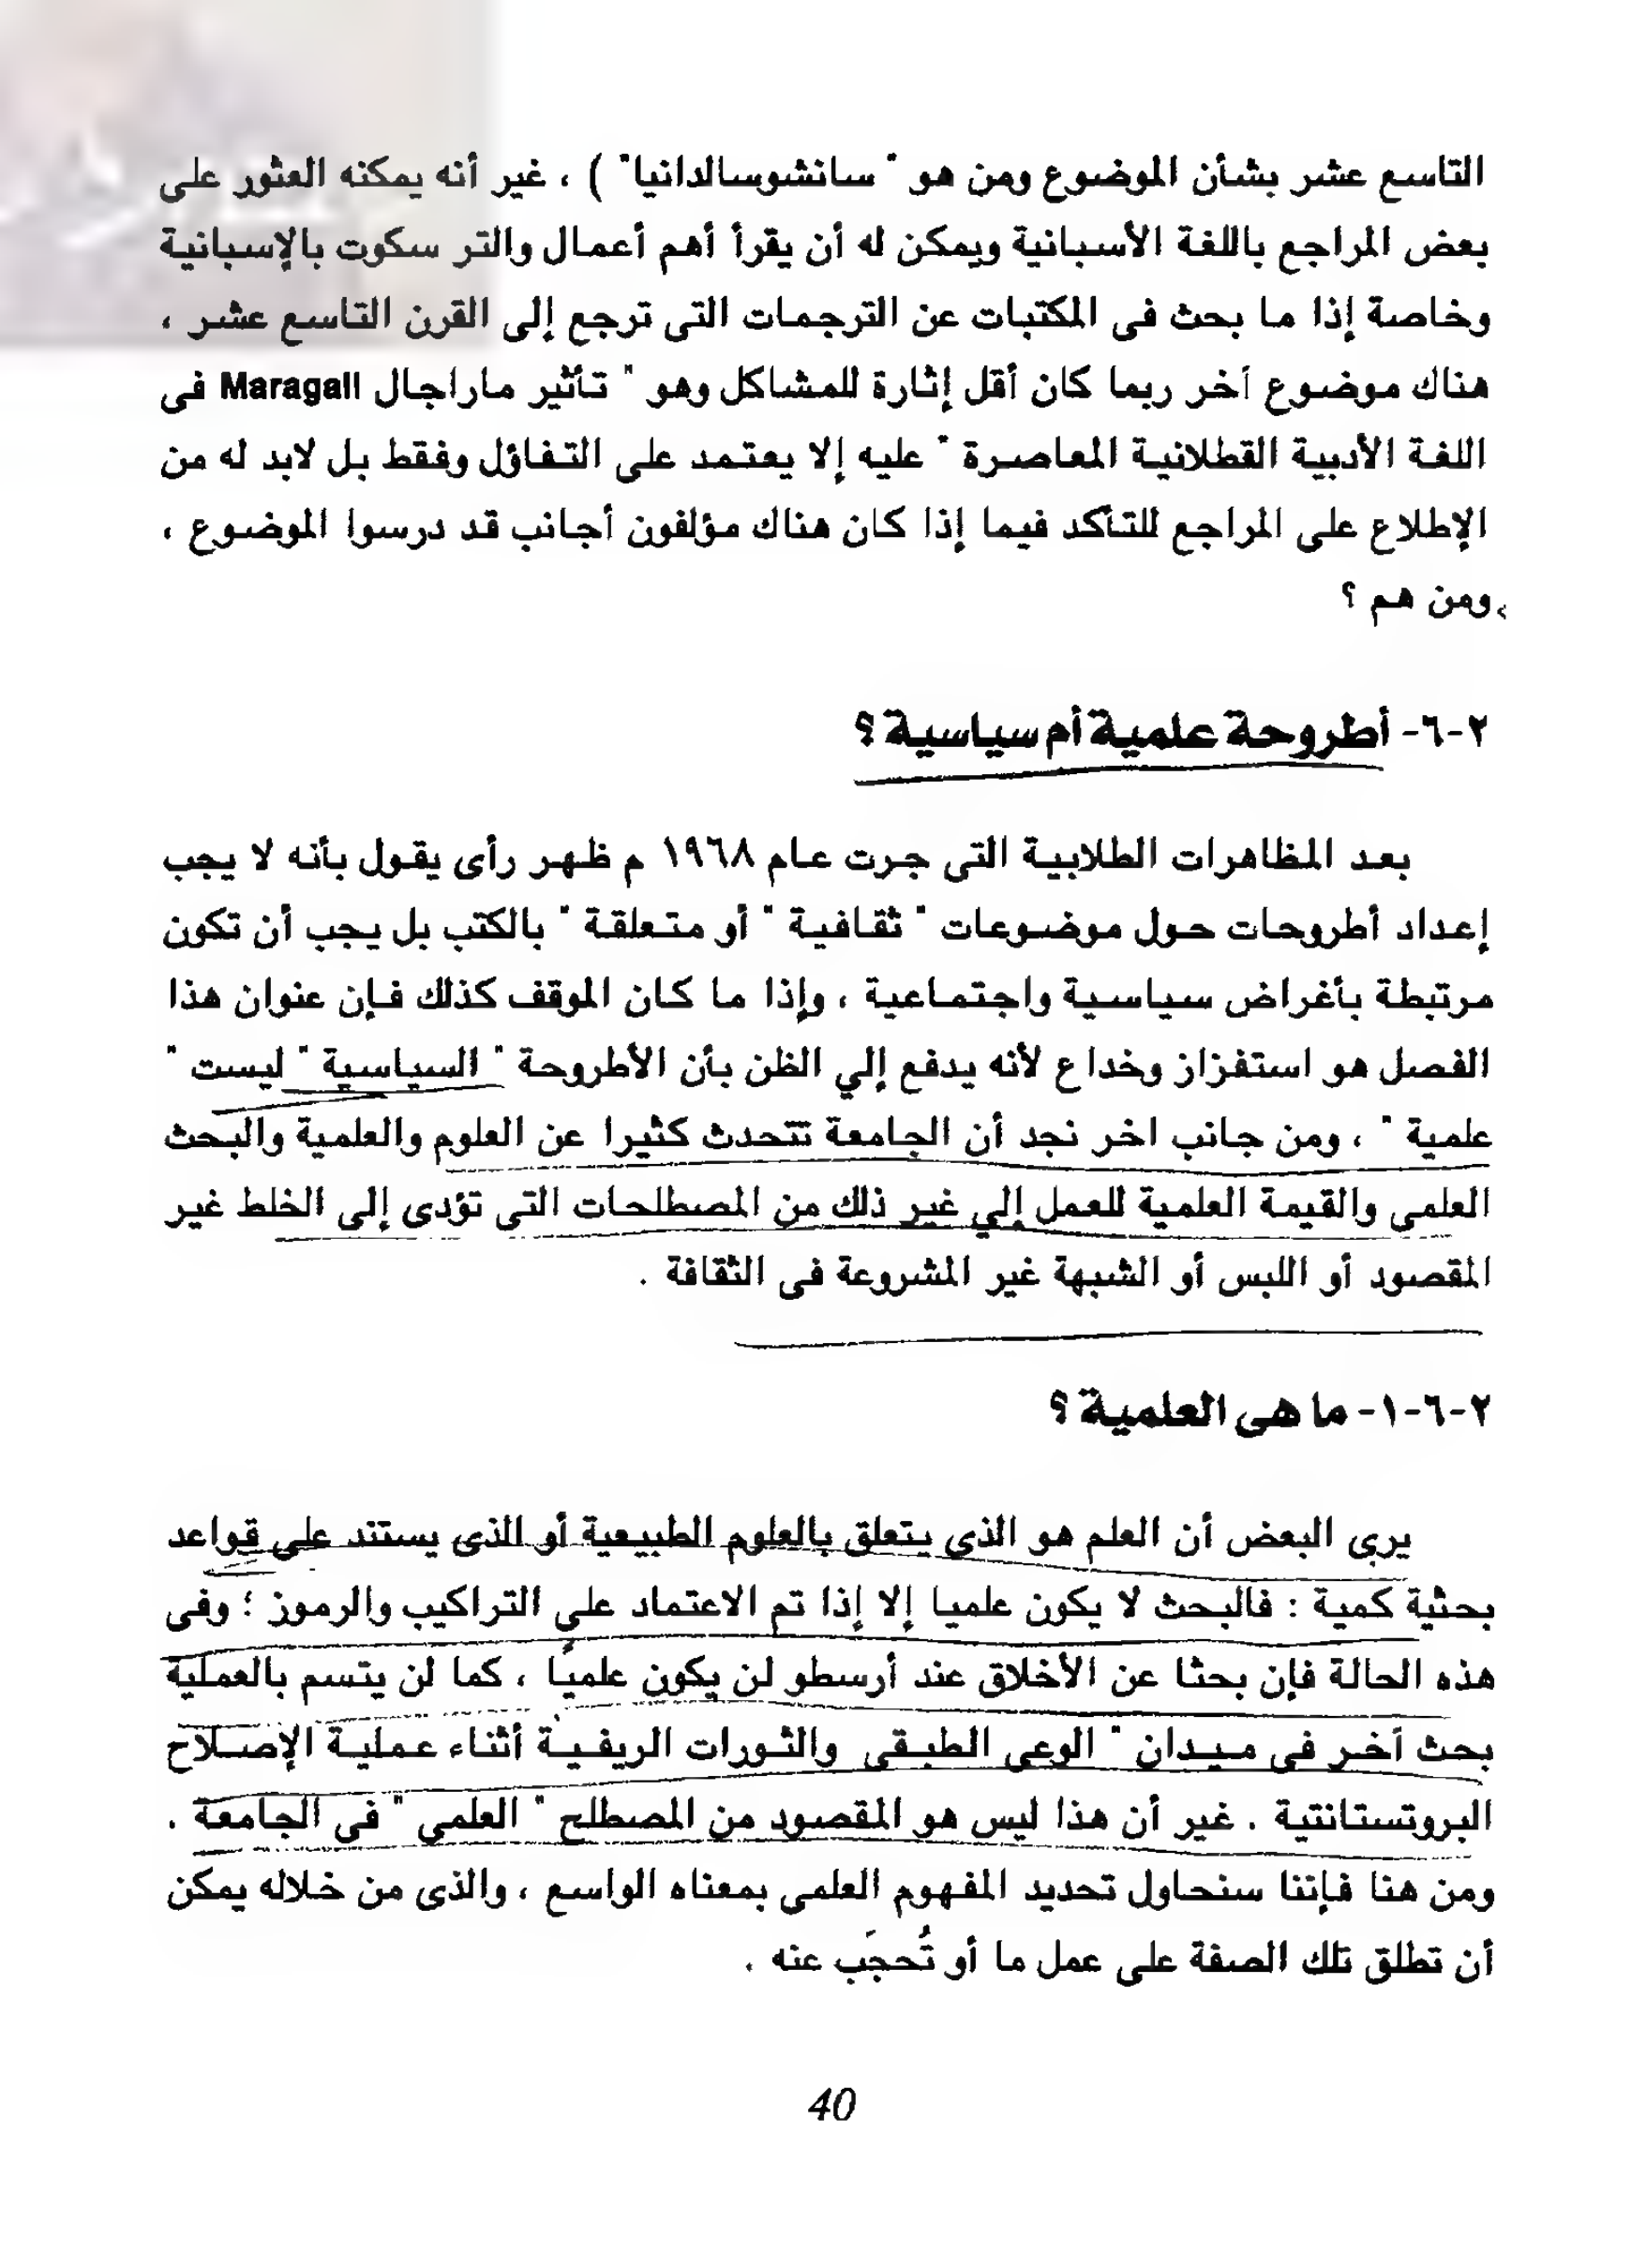 التاسع عشر بشأن الموضوع ومن هو " سانشوسالدانيا" ) ، غير أنه يمكنه العثور على
بعض المراجع باللغة الأسبانية ويمكن له أن يقرأ أهم أعمال والتر سكوت بالإسبانية
وخاصة إذا ما بحث فى المكتبات عن الترجمات التى ترجع إلى القرن التاسع عشر ،
هناك موضوع آخر ربما كان أقل إثارة للمشاكل وهو " تأثير ماراجال Maragall فى
اللغة الأدبية القطلانية المعاصرة " عليه إلا يعتمد على التفاؤل وفقط بل لابد له من
الإطلاع على المراجع للتأكد فيما إذا كان هناك مؤلفون أجانب قد درسوا الموضوع ،
ومن هم ؟
٢-٦- أطروحة علمية أم سياسية ؟
بعد المظاهرات الطلابية التى جرت عام ١٩٦٨ م ظهر رأى يقول بأنه لا يجب
إعداد أطروحات حول موضوعات " ثقافية " أو متعلقة " بالكتب بل يجب أن تكون
مرتبطة بأغراض سياسية واجتماعية ، وإذا ما كان الموقف كذلك فإن عنوان هذا
الفصل هو استفزاز وخداع لأنه يدفع إلي الظن بأن الأطروحة " السياسية " ليست "
علمية " ، ومن جانب اخر نجد أن الجامعة تتحدث كثيرا عن العلوم والعلمية والبحث
العلمى والقيمة العلمية للعمل إلي غير ذلك من المصطلحات التى تؤدى إلى الخلط غير
المقصود أو اللبس أو الشبهة غير المشروعة فى الثقافة .
٢-٦-١- ما هى العلمية ؟
يرى البعض أن العلم هو الذى يتعلق بالعلوم الطبيعية أو الذى يستند على قواعد
بحثية كمية : فالبحث لا يكون علميا إلا إذا تم الاعتماد علي التراكيب والرموز ؛ وفى
هذه الحالة فإن بحثا عن الأخلاق عند أرسطو لن يكون علميًا ، كما لن يتسم بالعملية
بحث آخر فى ميدان " الوعى الطبقى والثورات الريفية أثناء عملية الإصلاح
البروتستانتية . غير أن هذا ليس هو المقصود من المصطلح " العلمي " فى الجامعة .
ومن هنا فإننا سنحاول تحديد المفهوم العلمى بمعناه الواسع ، والذى من خلاله يمكن
أن تطلق تلك الصفة على عمل ما أو تُحجَب عنه .
40